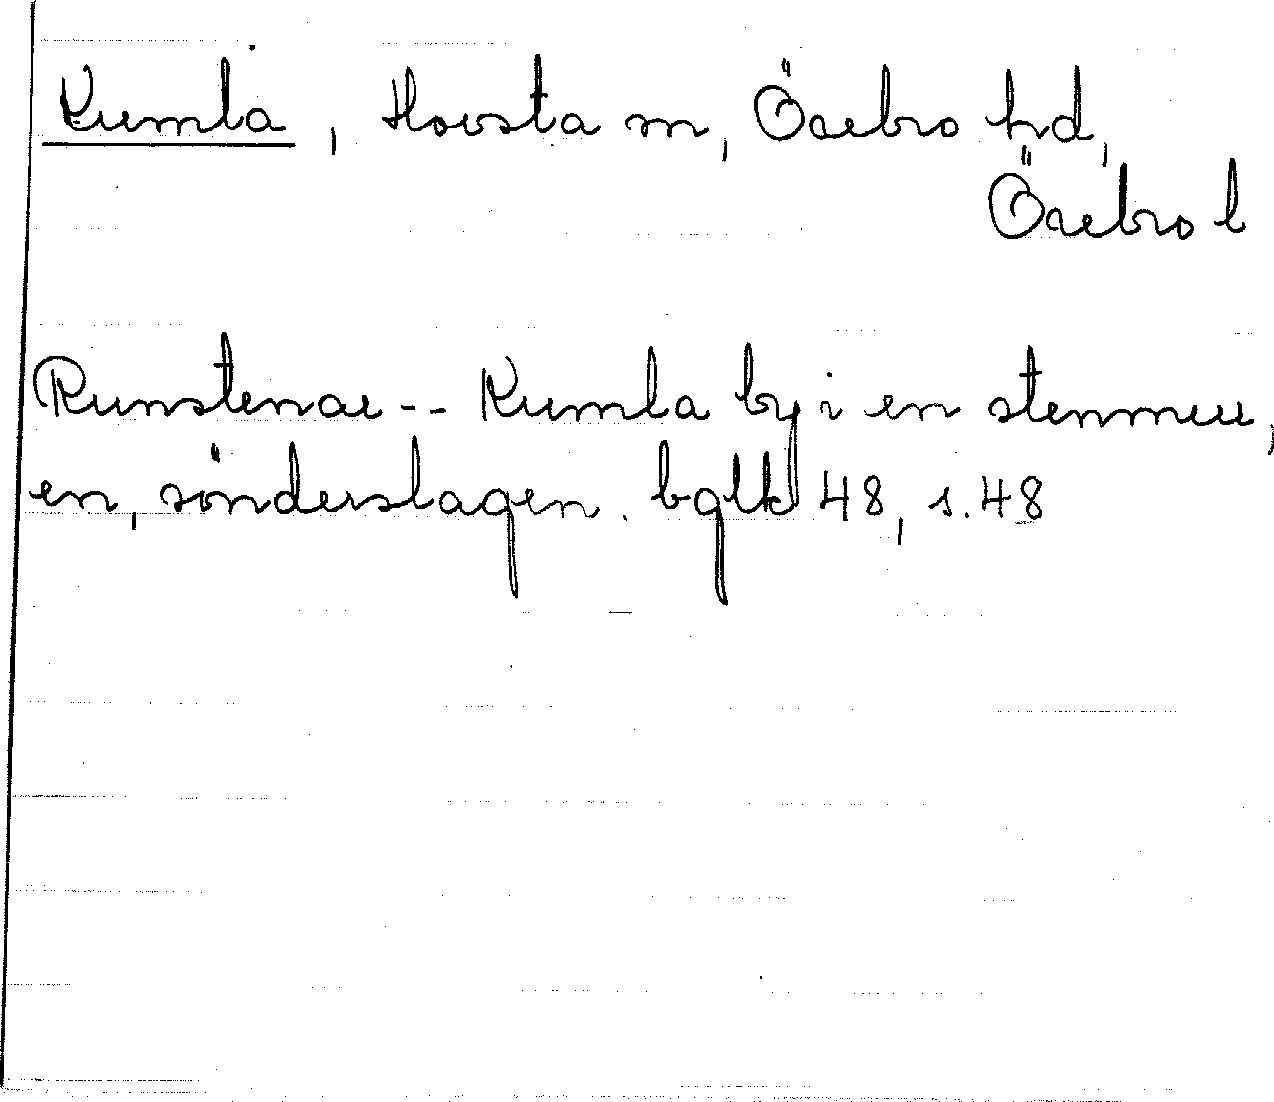 Kumla, Hovsta sn, Örebro hd,
Örebro l
Runstenar -- Kumla by i en stenmur,
en, sönderslagen. bglk 48, s. 48